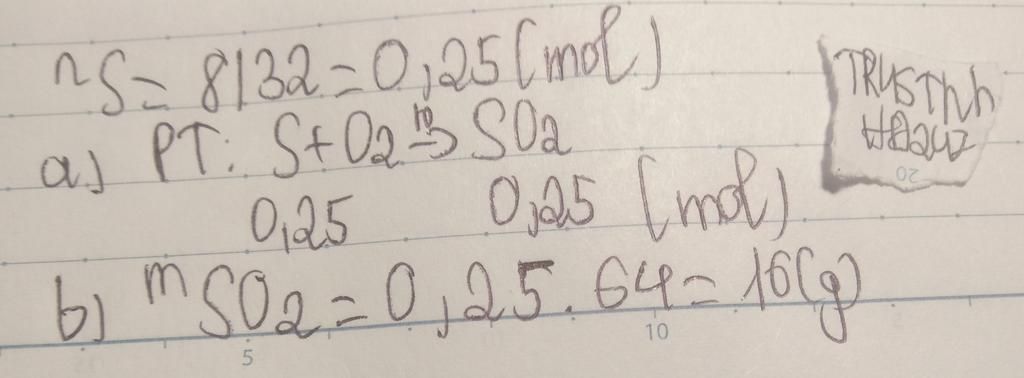 nS = 8/32 = 0,25 (mol)
a) PT: S + O2 → SO2
0,25 0,25 (mol)
b) mSO2 = 0,25 . 64 = 16 (g)
TRUSThh
20
5
10